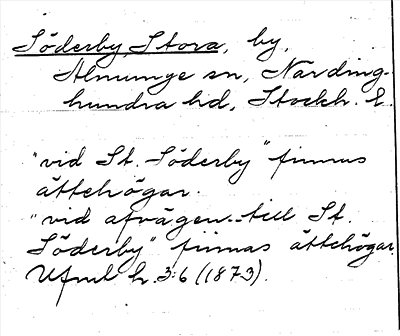 Söderby, Stora, by,
Almunge sn, Närding-
hundra hd, Stockh. l.
"vid St. Söderby" finnas
ättehögar.
"vid afvägen till St.
Söderby" finnas ättehögar.
Ufmt h. 3:6 (1873).